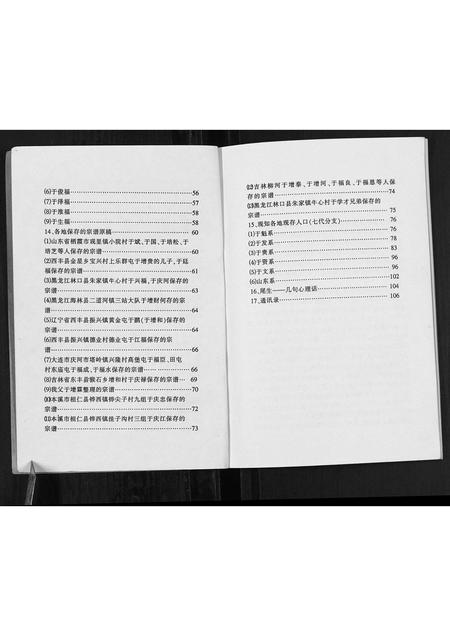 ⑹于俊福……56
⑺于泽福……57
⑻于淮福……58
⑼于生福……58
14、各地保存的宗谱原稿……60
⑴山东省栖霞市观里镇小院村于斌、于国、于培松、于
培芝等人保存的宗谱……60
⑵西丰县金星乡宝兴村上乐群屯于增贵的儿子,于廷
福保存的宗谱……61
⑶黑龙江林口县朱家镇牛心村于兴福,于庆河保存的
宗谱……63
⑷黑龙江海林县二道河镇三站大队于增财何存的宗
谱……64
⑸辽宁省西丰县振兴镇黄金屯于鹏(于增和)保存的
宗谱……64
⑹西丰县振兴镇德业村德业屯于江福保存的宗
谱……66
⑺大连市庄河市塔岭镇兴隆村高堡屯于福臣、田屯
村东庙屯于福成、于福水保存的宗谱……66
⑻吉林省东丰县猴石乡增和村于庆禄保存的宗谱…69
⑼我父于增霖整理的宗谱……70
⑽本溪市桓仁县铧西镇铧尖子村九组于庆忠保存的
宗谱……72
⑾本溪市桓仁县铧西镇洼子沟村三组于庆江保存的
宗谱……73
⑿吉林柳河于增泰、于增河、于福良、于福恩等人保
存的宗谱……74
⒀黑龙江林口县朱家镇牛心村于学才兄弟保存的
宗谱……75
15、现知各地现存人口(七代分支)……76
⑴于魁系……76
⑵于发系……78
⑶于贵系……83
⑷于贤系……96
⑸于文系……96
⑹山东系……102
16、尾生——几句心理话……104
17、通讯录……106